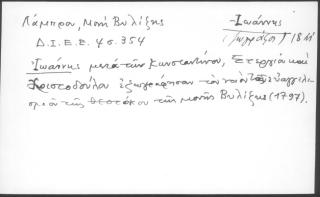 Λάμπρου, Μονή Βυλίζης
Ἰωάννης
Δ.Ι.Ε.Ε. 4 σ. 354
Ἰωάννης μετά τῶν Κωνσταντίνου, Στεργίου καί
Χριστοδούλου ἐξωγράφησαν τόν ναόν τοῦ εὐαγγελι-
σμοῦ τῆς Θεοτόκου τῆς μονῆς Βυλίζης (1797).